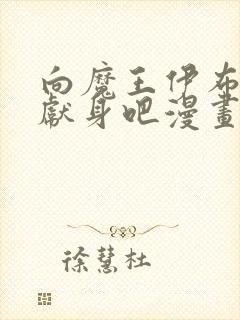 向魔王伊布
獻身吧漫畫
徐慧杜